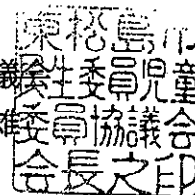 東松島市
義民生委員児童
委員協議会
会長之印